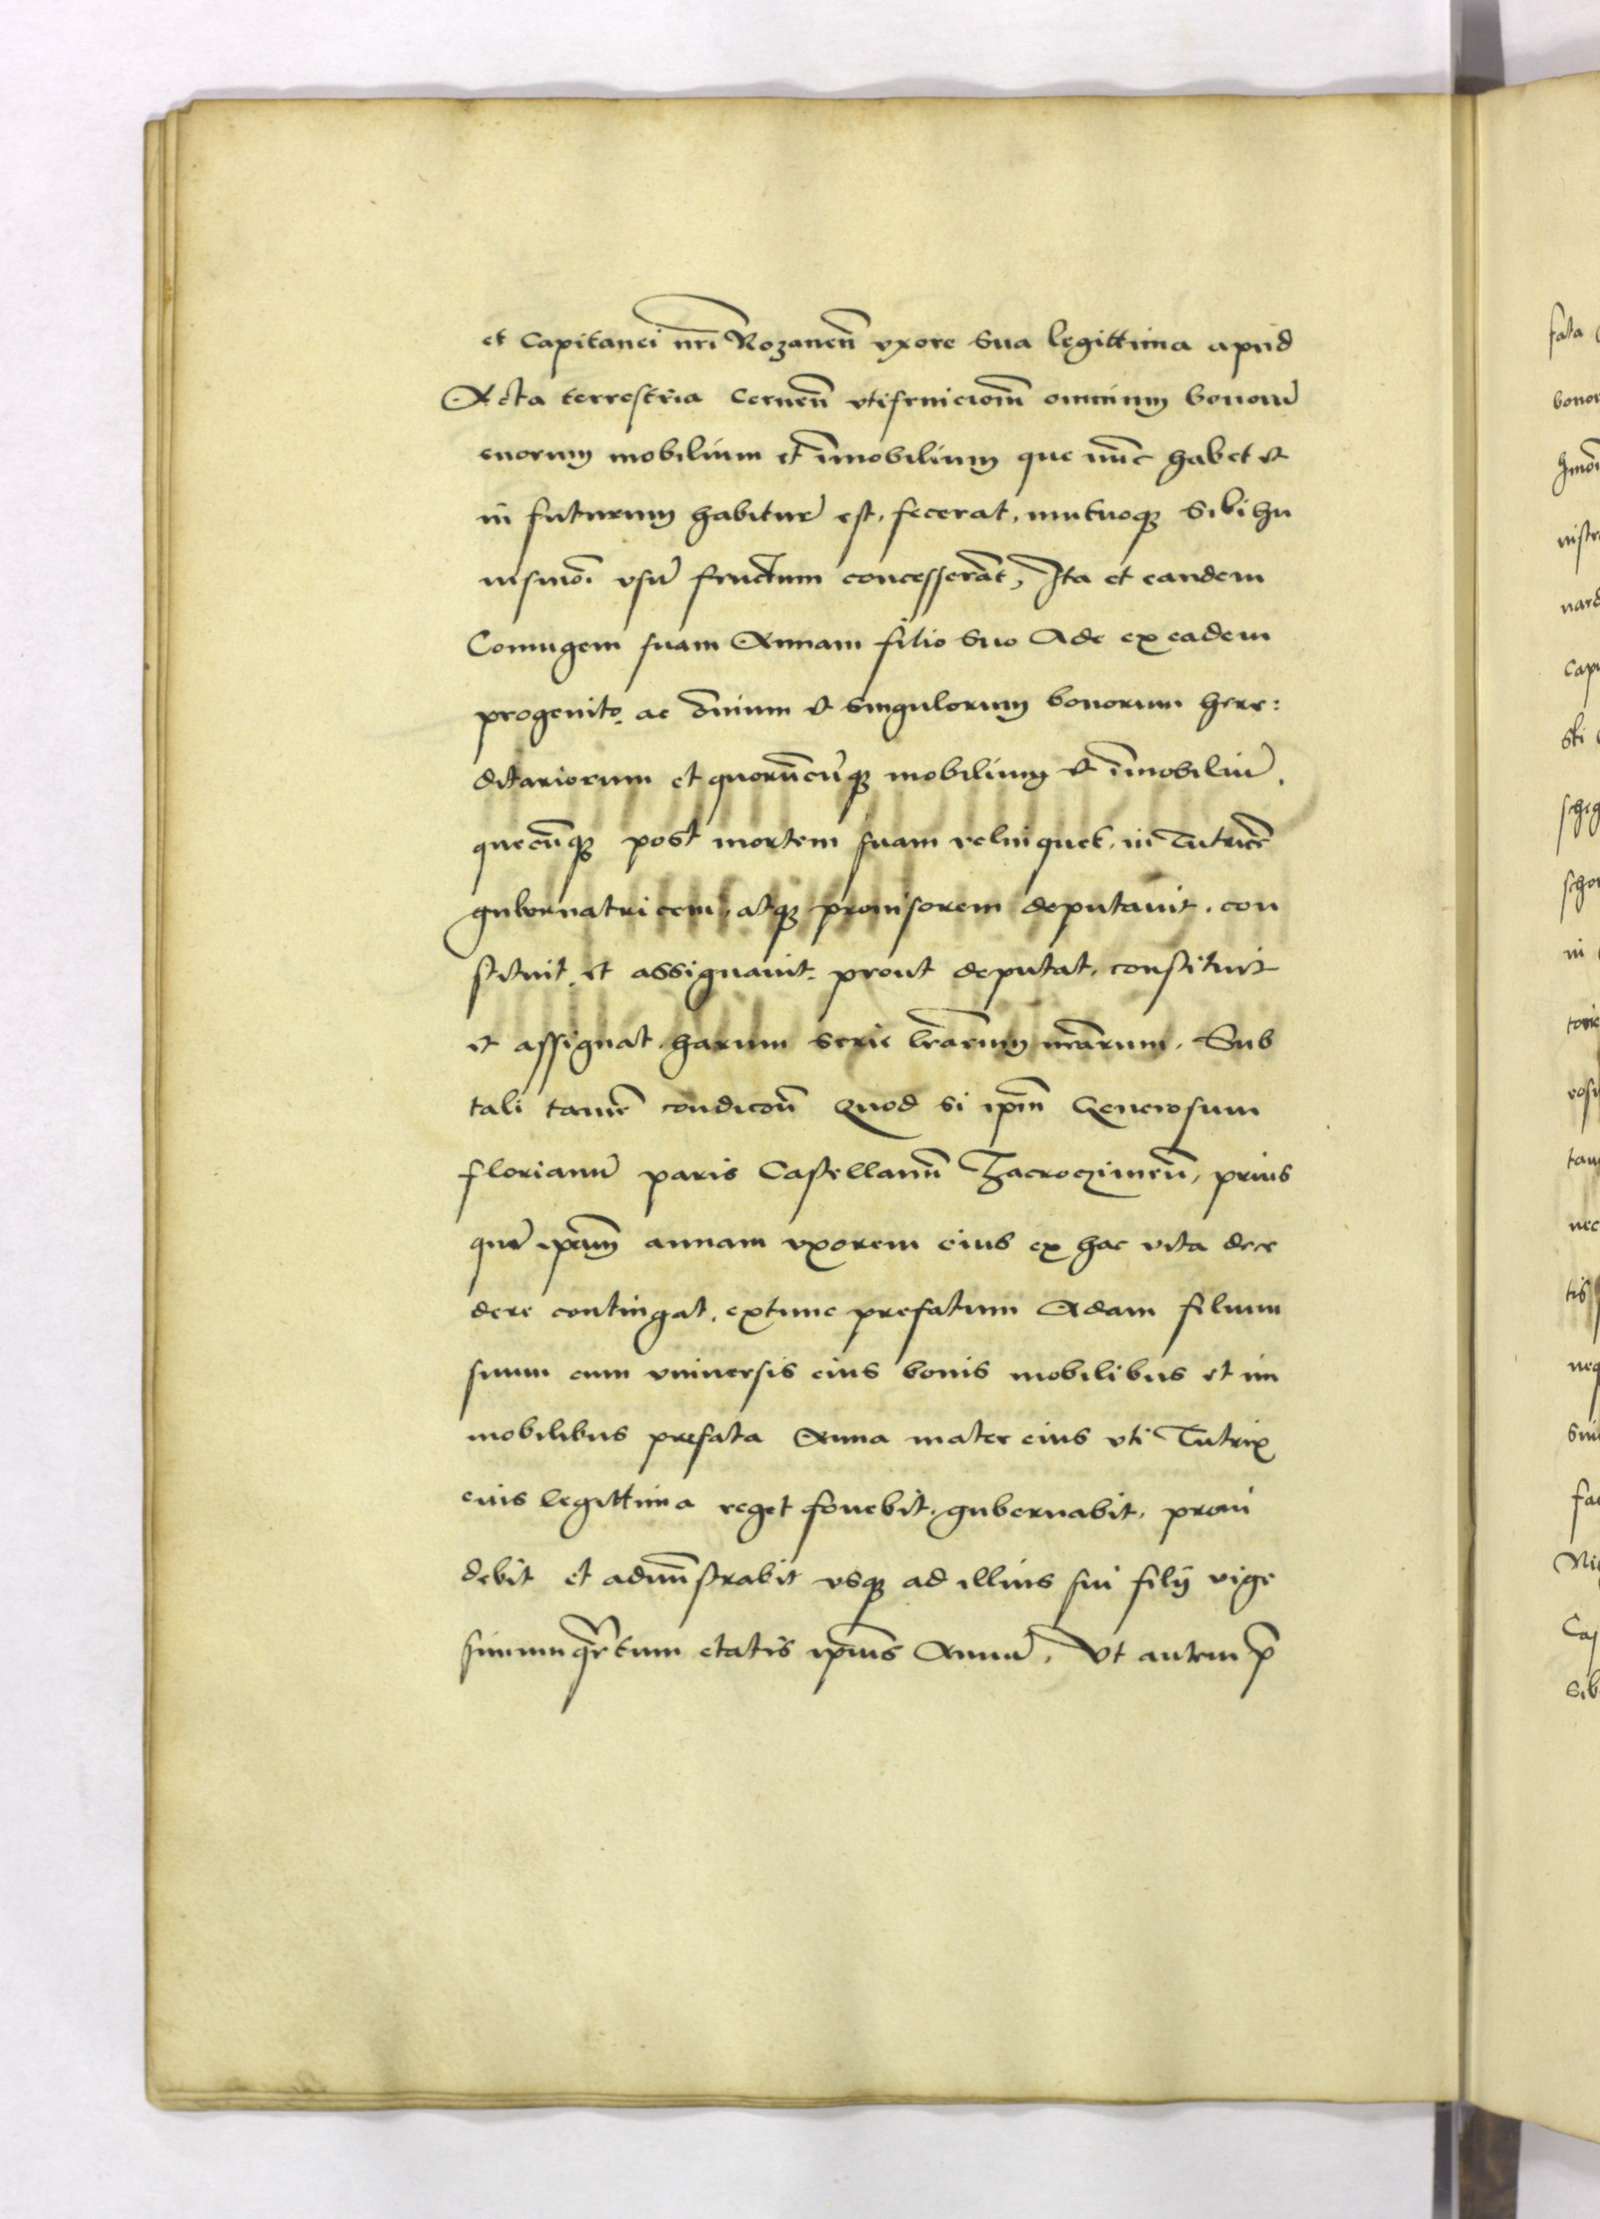 et Capitanei nr̃i Rozaneñ vxore sua legittima apud
Acta terrestria Cerneñ vtifruicioñ omnium bonoru̅
suorum mobilium et im̅obilium que nu̅c habet et
in futurum habitur̃ est, fecerat, mutuoq3 sibi hu
iusmo̅i usu̅ fructum concessera̅t, Ita et eandem
Coniugem suam Annam filio suo Ade ex eadem
progenito, ac o̅nium et singulorum bonorum here:
ditariorum et quoru̅cu̅q3 mobilium et im̅obiliu̅,
quecu̅q3 post mortem suam relinquet, in Tutrice̅
gubernatricem, atq3 prouisorem deputauit, con
stituit, et assignauit, prout deputat, constituit
et assignat harum serie lr̃arum nr̃arum, Sub
tali tame̅ condicõn Quod si ip̅m Generosum
florianu̅ paris Castellanu̅ Zacroczimeñ, prius
qua̅ ip̅am annam vxorem eius ex hac vita dece
dere contingat, extunc prefatum Adam filium
suum cum vniuersis eius bonis mobilibus et im
mobilibus prefata Anna mater eius vti Tutrix
eius legittima reget fouebit, gubernabit, proui
debit et admi̅strabit vsq3 ad illius sui filij vige
simum qr̃tum etatis ip̅ius Annu̅, Vt autem p̅